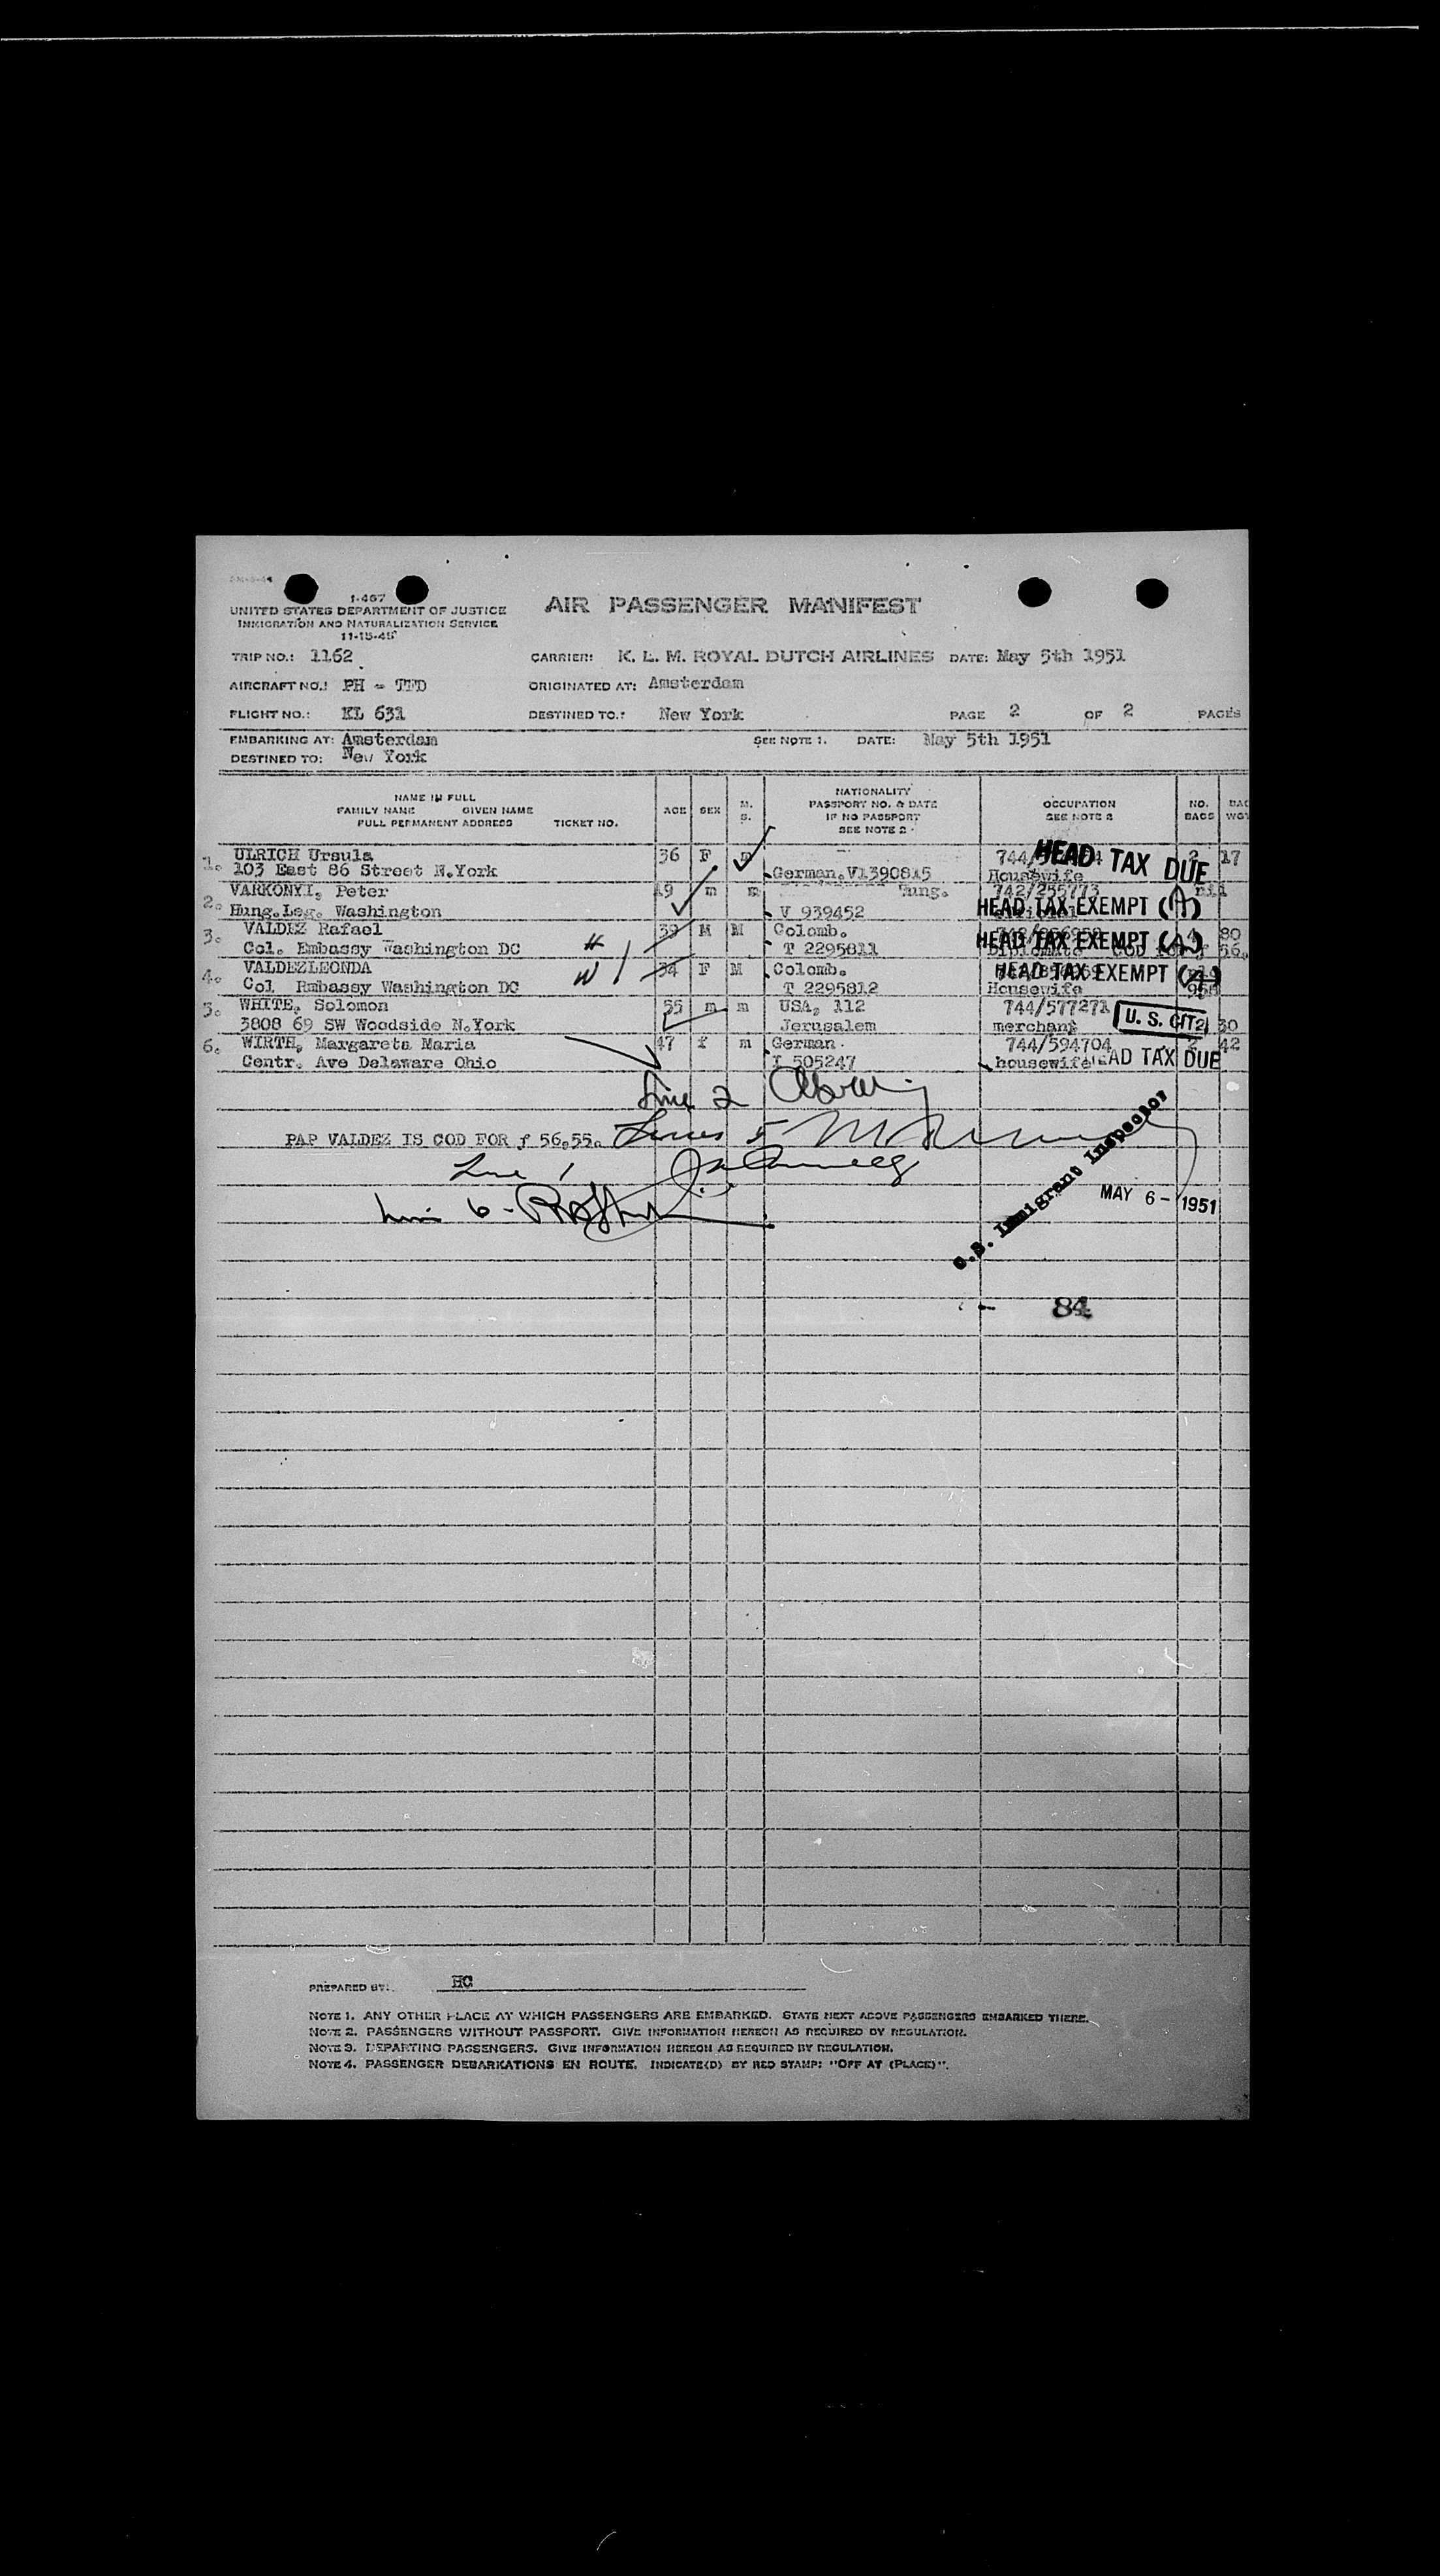 I-467
UNITED STATES DEPARTMENT OF JUSTICE
IMMIGRATION AND NATURALIZATION SERVICE
11-15-45
AIR PASSENGER MANIFEST
TRIP NO.: 1162 CARRIER: K. L. M. ROYAL DUTCH AIRLINES DATE: May 5th 1951
AIRCRAFT NO.: PH - TFD ORIGINATED AT: Amsterdam
FLIGHT NO.: KL 631 DESTINED TO.: New York PAGE 2 OF 2 PAGES
EMBARKING AT: Amsterdam SEE NOTE 1. DATE: May 5th 1951
DESTINED TO: New York
NAME IN FULL
FAMILY NAME GIVEN NAME
FULL PERMANENT ADDRESS TICKET NO.
AGE SEX M. S.
NATIONALITY
PASSPORT NO. & DATE
IF NO PASSPORT
SEE NOTE 2
OCCUPATION
SEE NOTE 2
NO. BAGS
1. ULRICH Ursula 36 F m 2 17
103 East 86 Street N.York German.V1390815 Housewife HEAD TAX DUE
2. VARKONYI, Peter 49 m m Hung. 742/255773 nil
Hung.Leg. Washington V 939452 HEAD TAX EXEMPT (A)
3. VALDEZ Rafael 39 M M Colomb. 4 80
Col. Embassy Washington DC H T 2295811 Diplomate HEAD TAX EXEMPT (A) 56.
4. VALDEZLEONDA 34 F M Colomb. HEAD TAX EXEMPT
Col Rmbassy Washington DC W T 2295812 Housewife
5. WHITE, Solomon 55 m m USA, 112 744/577271
3808 69 SW Woodside N.York Jerusalem merchant U. S. CIT 30
6. WIRTH, Margareta Maria 47 f m German 744/594704 2 42
Centr. Ave Delaware Ohio I 505247 housewife HEAD TAX DUE
Line 2
PAP VALDEZ IS COD FOR f 56.55. Lines 5
Line 1
Line 6 -
U.S. Immigrant Inspector
MAY 6 - 1951
84
PREPARED BY: HC
NOTE 1. ANY OTHER PLACE AT WHICH PASSENGERS ARE EMBARKED. STATE NEXT ABOVE PASSENGERS EMBARKED THERE.
NOTE 2. PASSENGERS WITHOUT PASSPORT. GIVE INFORMATION HEREON AS REQUIRED BY REGULATION.
NOTE 3. DEPARTING PASSENGERS. GIVE INFORMATION HEREON AS REQUIRED BY REGULATION.
NOTE 4. PASSENGER DEBARKATIONS EN ROUTE. INDICATE(D) BY RED STAMP: "OFF AT (PLACE)".